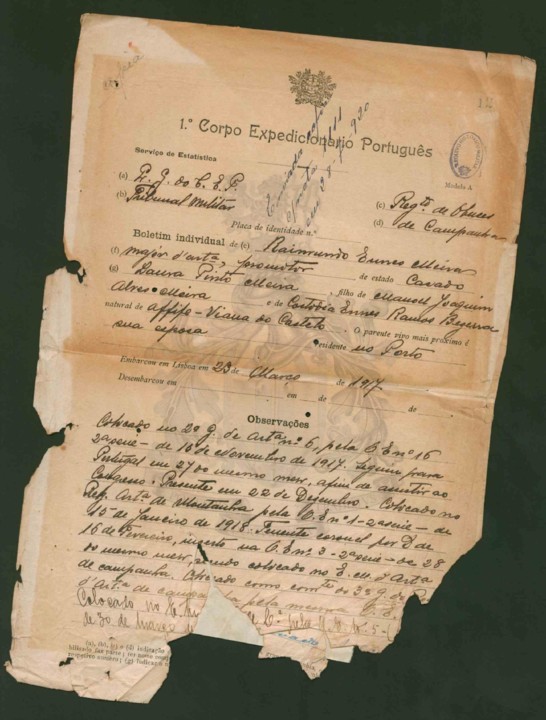 1.º Corpo Expedicionário Português
Serviço de Estatística
Modelo A
(a) Q. G. do C. E. P.
(b) Tribunal Militar
(c) Reg.to de Obuses
(d) de Campanha
Placa de identidade n.º
Boletim individual de (e) Raimundo Ennes Meira
(f) major d'art.a, promotor de estado Casado
(g) Laura Pinto Meira, filho de Manoel Joaquim
Alves Meira e de Custodia Ennes Ramos Bezerra
natural de Affife - Viana do Castelo. O parente vivo mais próximo é
sua esposa residente no Porto
Embarcou em Lisboa em 23 de Março de 1917
Desembarcou em de de
Observações
Colocado no 2º G. de Art.a nº 6, pela O. E. nº 16
2ª serie - de 15 de Novembro de 1917. Seguiu para
Portugal em 27 do mesmo mez, afim de assistir ao
Congresso. Presente em 22 de Dezembro. Colocado no
Reg. Art.a de Montanha pela O. E. nº 1 - 2ª serie - de
15 de Janeiro de 1918. Tenente coronel por D. de
16 de Fevereiro, inserto na O. E. nº 3 - 2ª serie - de 28
do mesmo mez, sendo colocado no E. M. d'Art.a
de campanha. Colocado como com.te do 3º G. de
d'Art.a de campanha pela mesma
Colocado no
de 30 de Março
(a), (b), (c) e (d) indicação